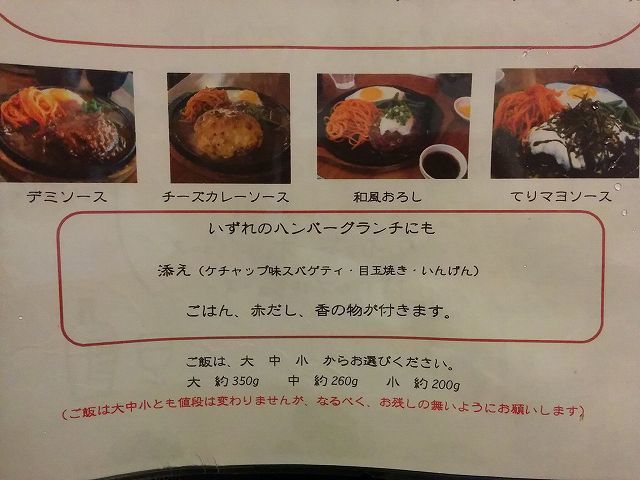 デミソース
チーズカレーソース
和風おろし
てりマヨソース
いずれのハンバーグランチにも
添え(ケチャップ味スパゲティ・目玉焼き・いんげん)
ごはん、赤だし、香の物が付きます。
ご飯は、大 中 小 からお選びください。
大 約350g 中 約260g 小 約200g
(ご飯は大中小とも値段は変わりませんが、なるべく、お残しの舞いようにお願いします)